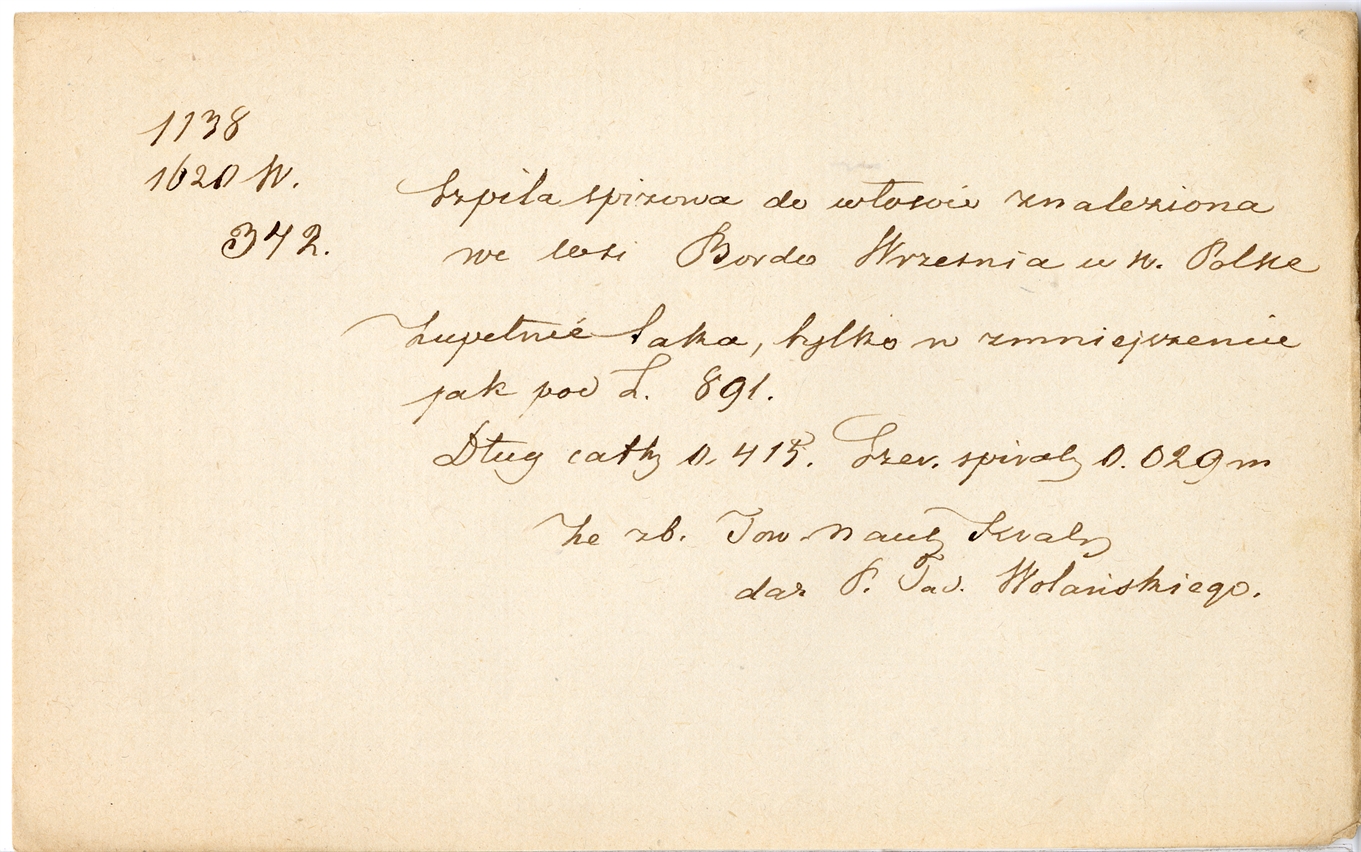 1138
1620 W.
342.
Szpila spiżowa do włosów znaleziona
we wsi Bardo Wrzesnia w W. Polsce
Zupełnie taka, tylko w zmniejszeniu
jak pod L. 891.
Dług całk 0.415. Szer. spiraly 0.029 m
Ze zb. Tow. Nauk Krak
dar P. Tad. Wolańskiego.